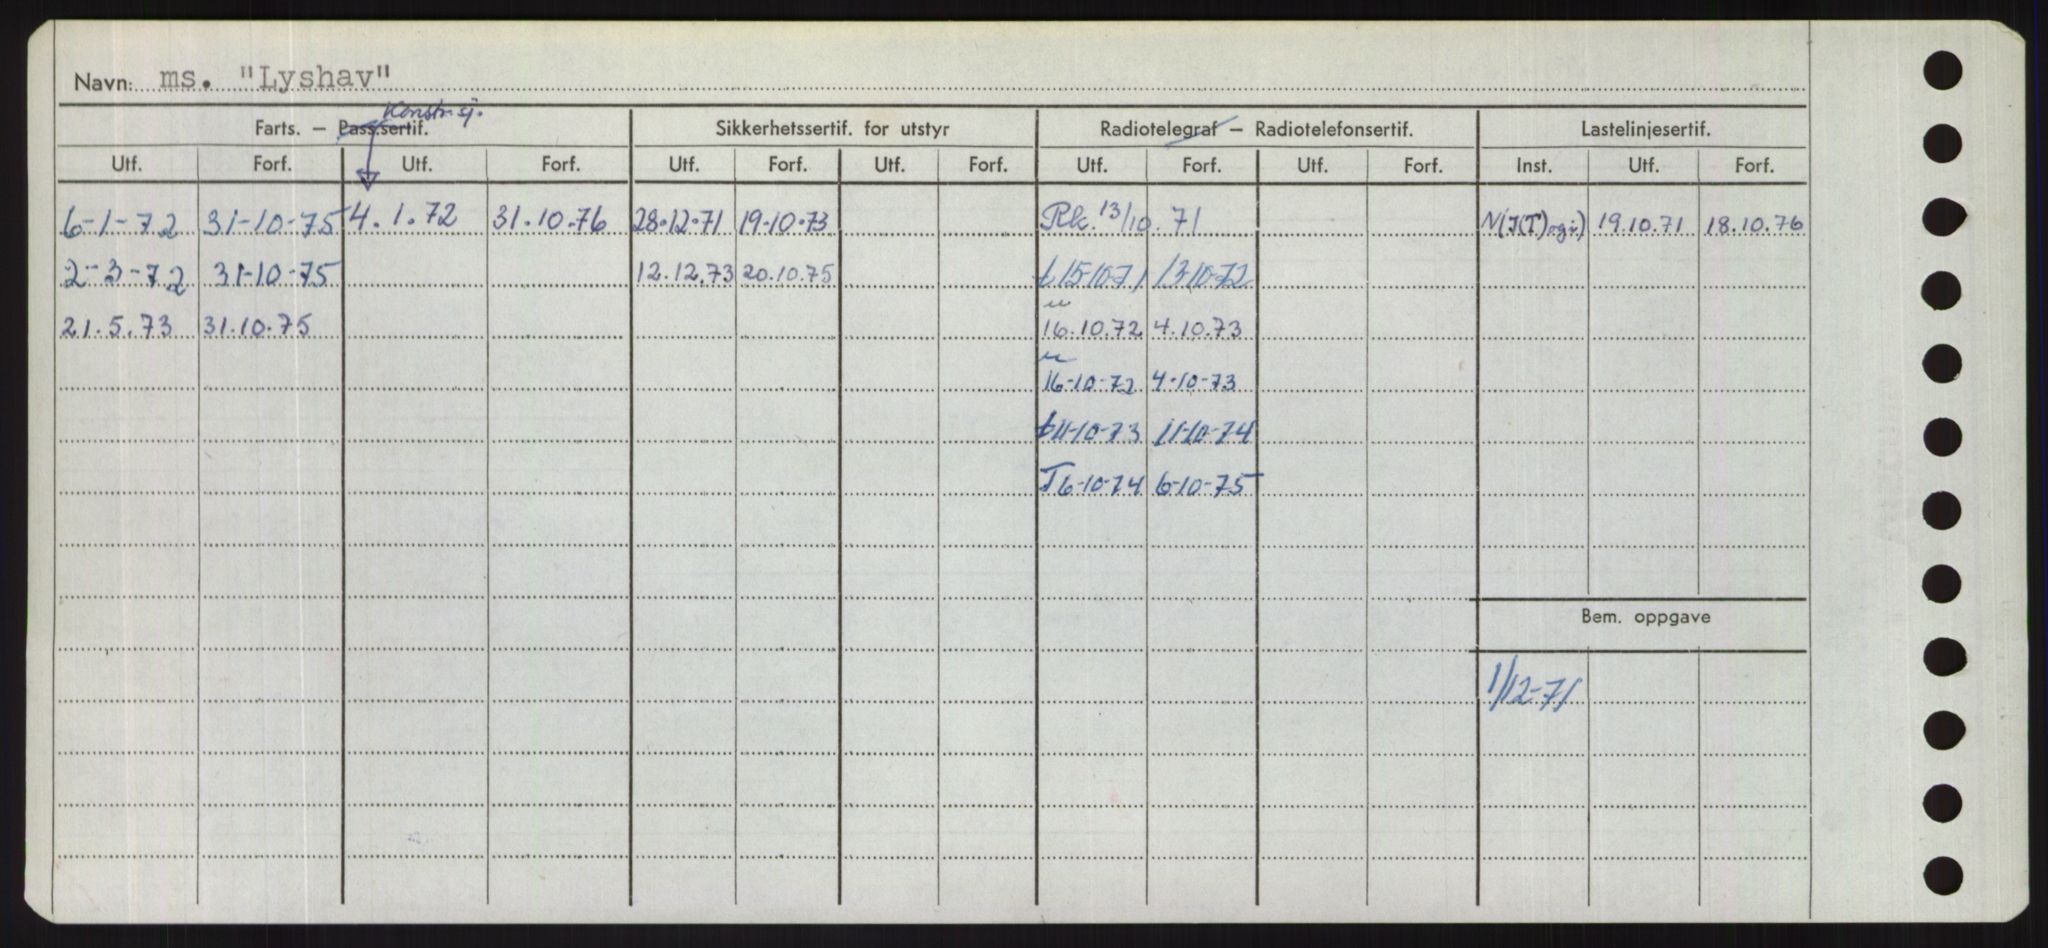 Navn: ms. "Lyshav"
Konstr. sj.
Farts. – Pass.sertif. Sikkerhetssertif. for utstyr Radiotelegraf – Radiotelefonsertif. Lastelinjesertif.
Utf. Forf. Utf. Forf. Utf. Forf. Utf. Forf. Utf. Forf. Utf. Forf. Inst. Utf. Forf.
6-1-72 31-10-75 4.1.72 31.10.76 28.12.71 19.10.73 Rk. 13/10.71 19.10.71 18.10.76
2-3-72 31-10-75 12.12.73 20.10.75 t 15-10-71 13-10-72
21.5.73 31.10.75 16.10.72 4.10.73
16-10-72 4-10-73
t 11-10-73 11-10-74
T 6-10-74 6-10-75
Bem. oppgave
1/12-71